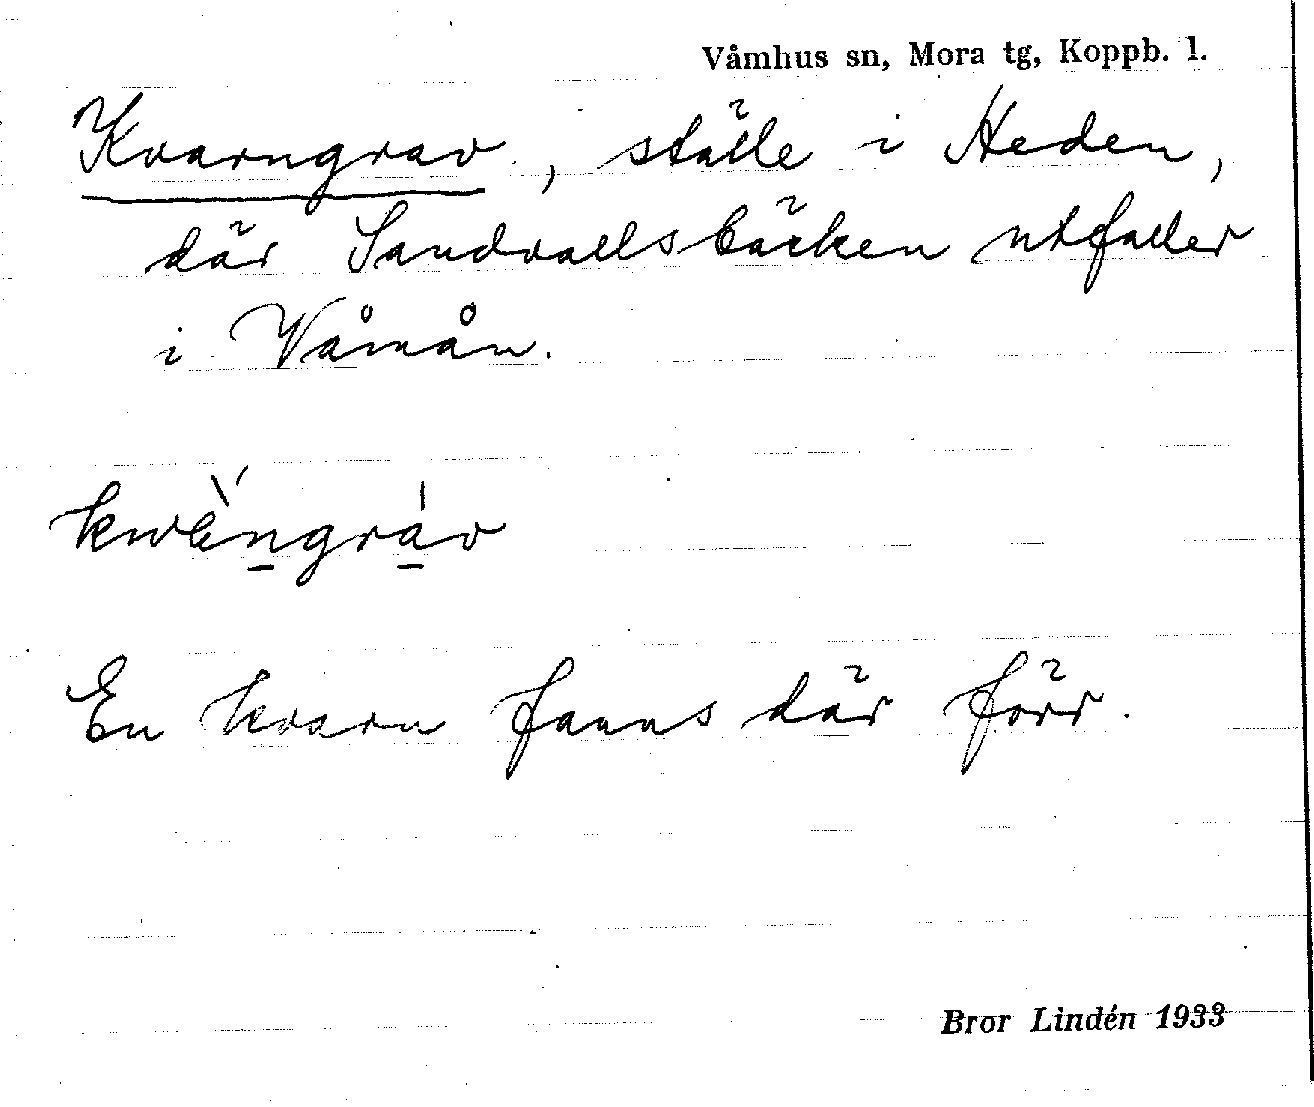 Våmhus sn, Mora tg, Koppb. l.
Kvarngrav, ställe i Heden,
där Sandvallsbäcken utfaller
i Våmån.
kwèngrav
En kvarn fanns där förr.
Bror Lindén 1933